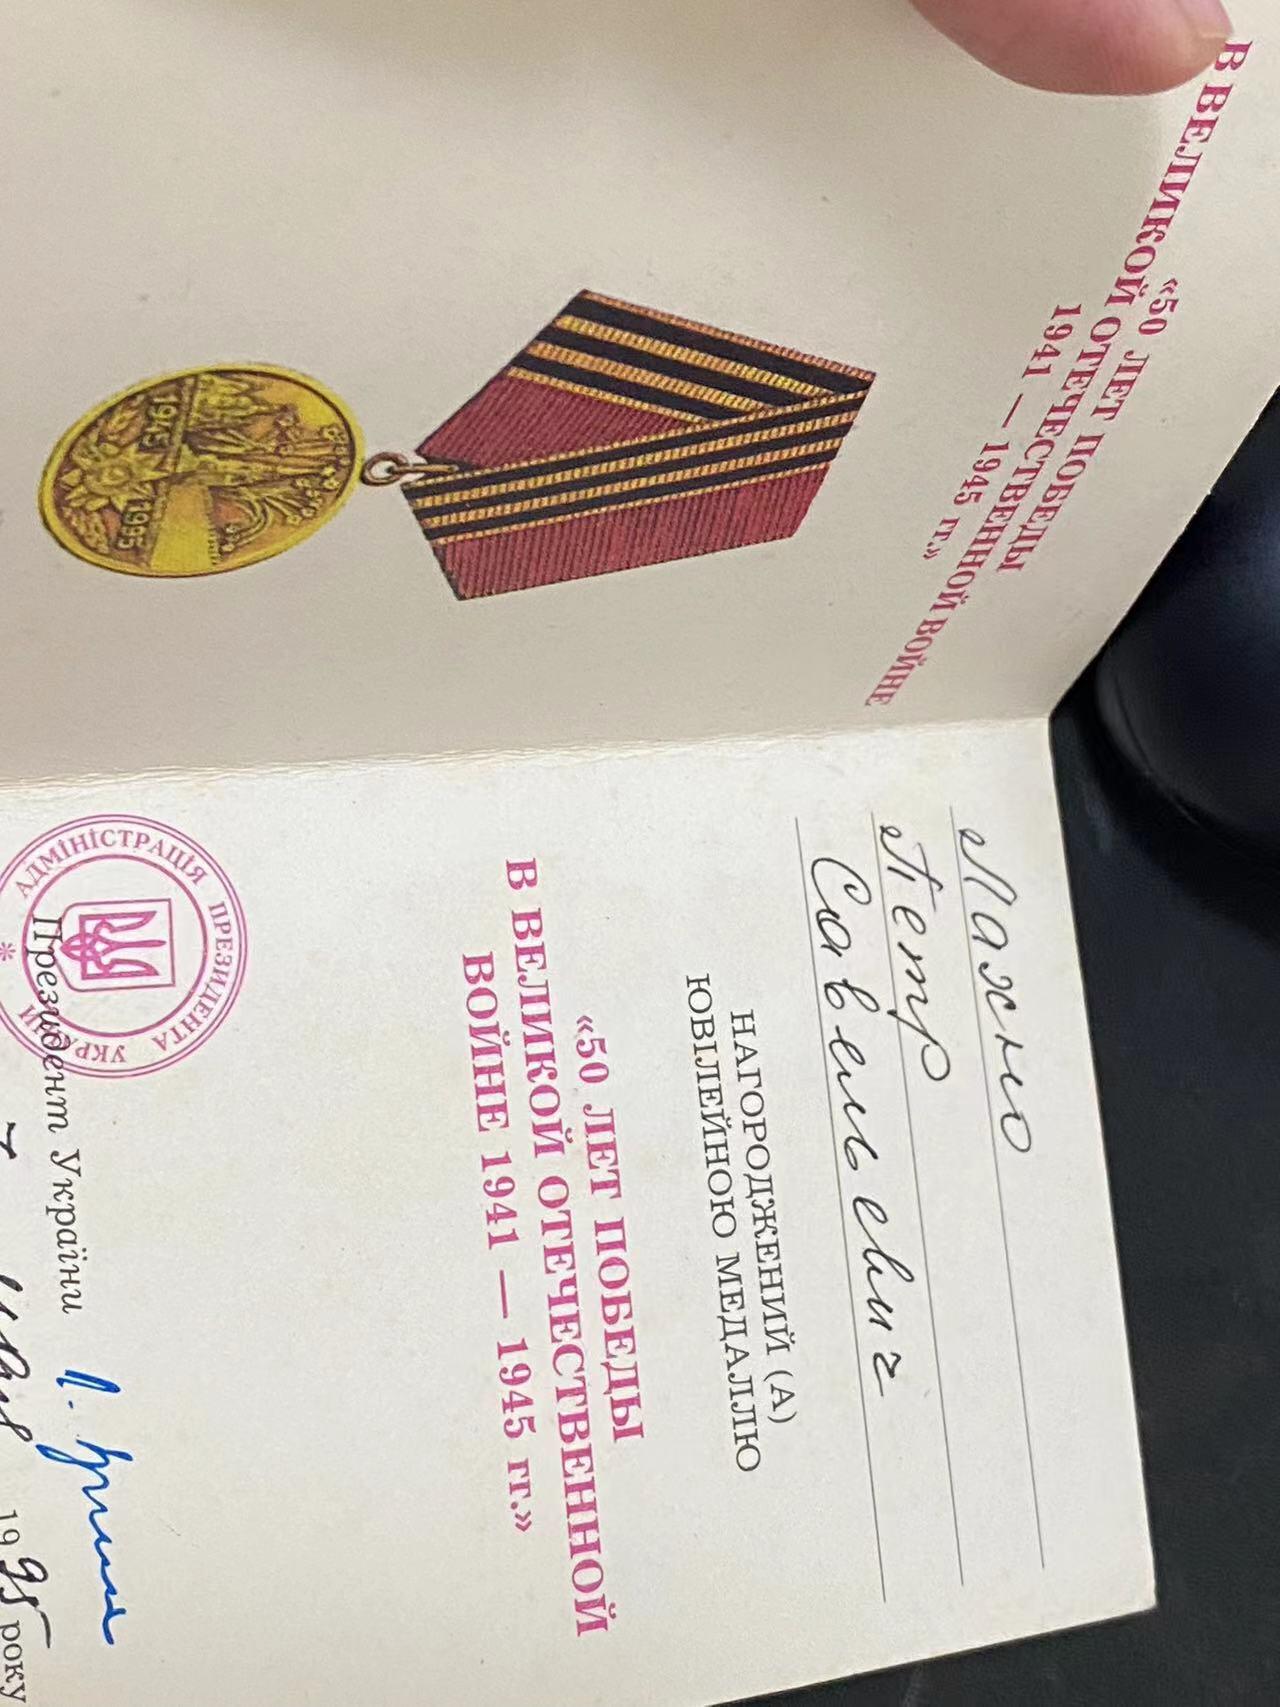 «50 ЛЕТ ПОБЕДЫ
В ВЕЛИКОЙ ОТЕЧЕСТВЕННОЙ ВОЙНЕ
1941 — 1945 гг.»
1945
1995
Махно
Петр
Савельевич
НАГОРОДЖЕНИЙ (А)
ЮВІЛЕЙНОЮ МЕДАЛЛЮ
«50 ЛЕТ ПОБЕДЫ
В ВЕЛИКОЙ ОТЕЧЕСТВЕННОЙ
ВОЙНЕ 1941 — 1945 гг.»
АДМІНІСТРАЦІЯ ПРЕЗИДЕНТА УКРАЇНИ *
Президент України
1995 року